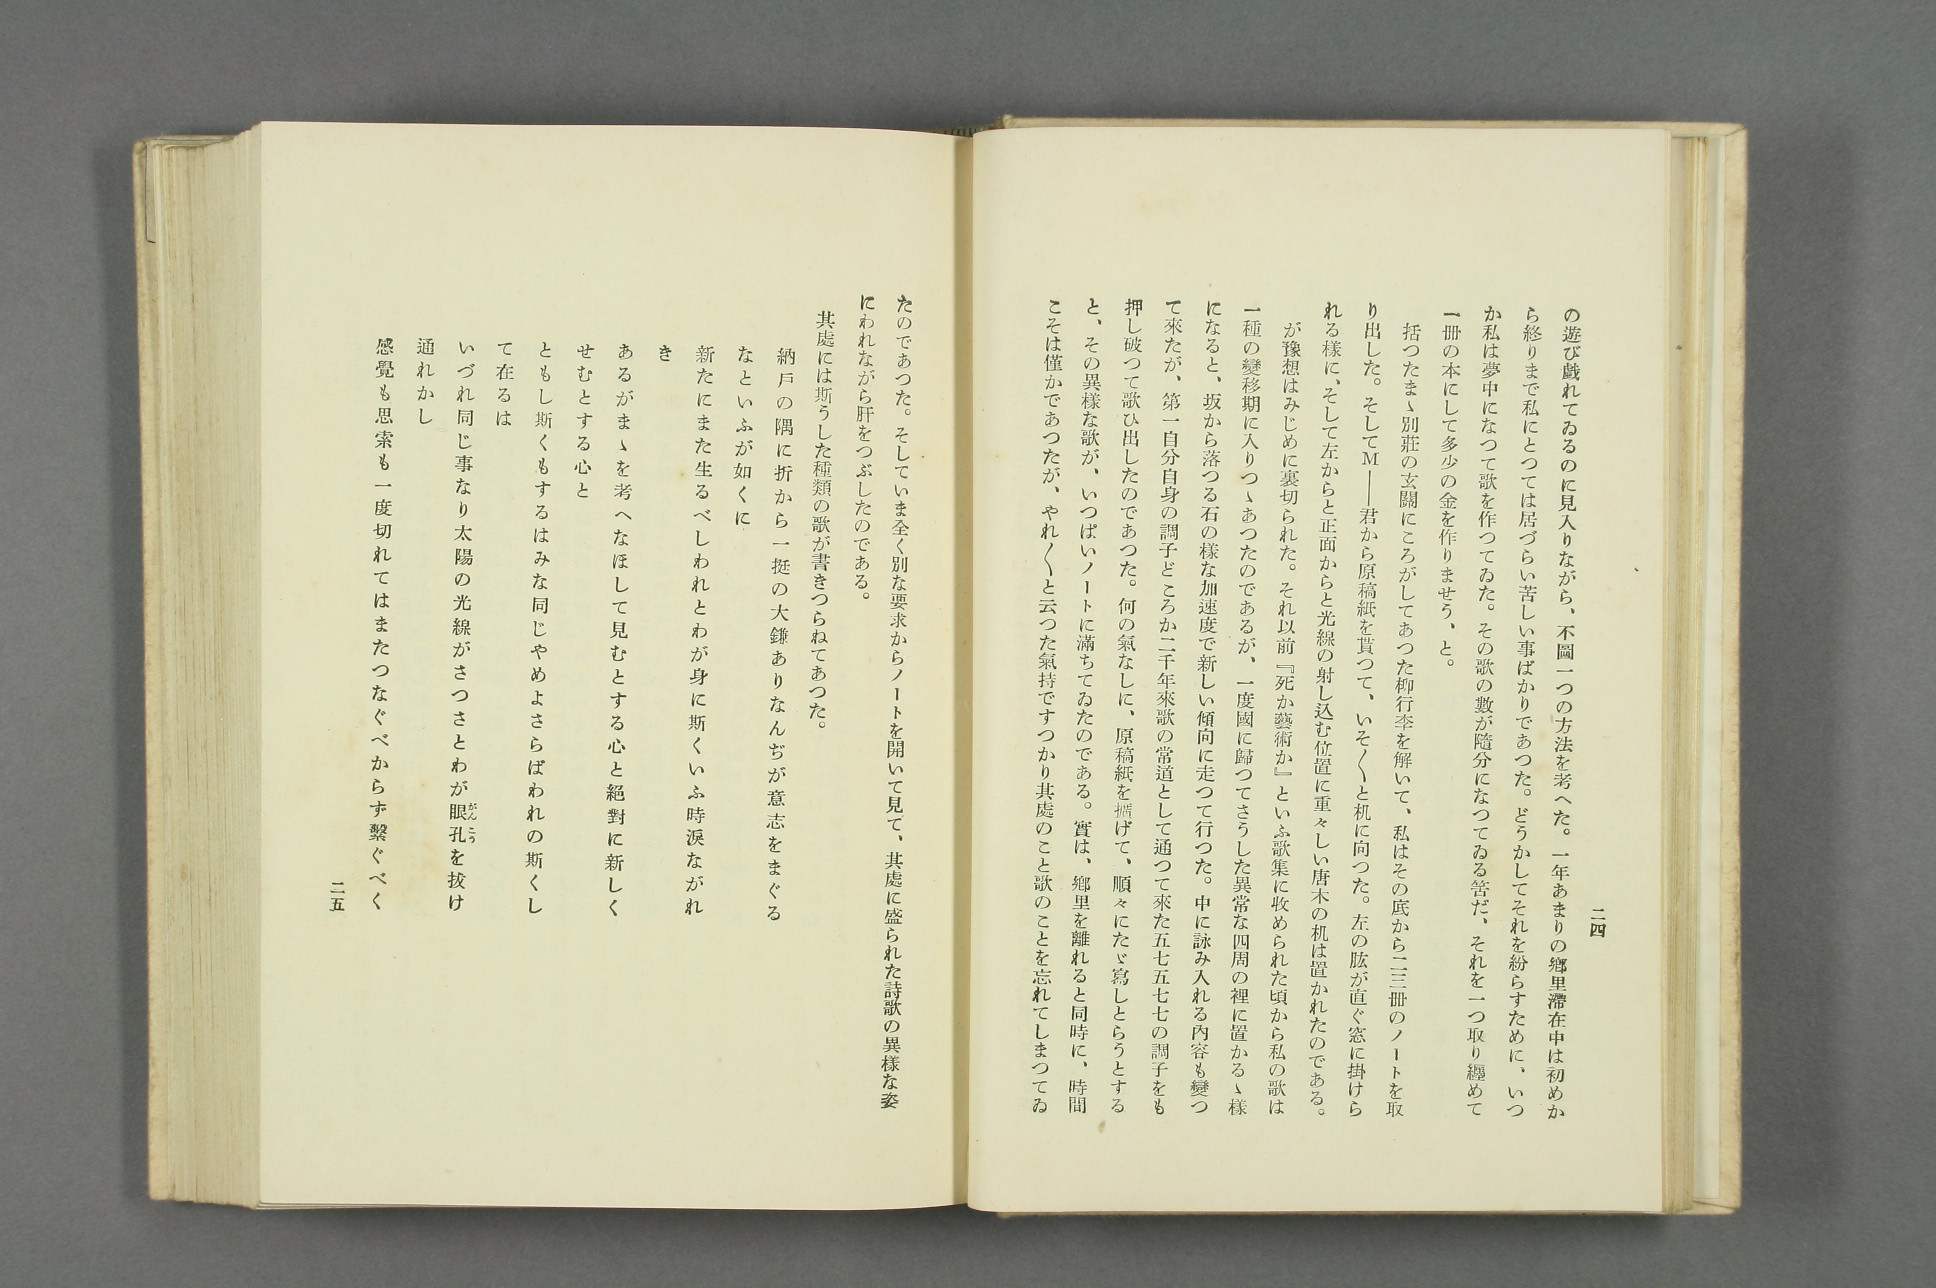 二四
の遊び戯れてゐるのに見入りながら、不圖一つの方法を考へた。一年あまりの鄕里滯在中は初めか
ら終りまで私にとつては居づらい苦しい事ばかりであつた。どうかしてそれを紛らすために、いつ
か私は夢中になつて歌を作つてゐた。その歌の數が隨分になつてゐる筈だ、それを一つ取り纏めて
一冊の本にして多少の金を作りませう、と。
括つたまゝ別莊の玄關にころがしてあつた柳行李を解いて、私はその底から二三冊のノートを取
り出した。そしてM――君から原稿紙を貰つて、いそ〱と机に向つた。左の肱が直ぐ窓に掛けら
れる樣に、そして左からと正面からと光線の射し込む位置に重々しい唐木の机は置かれたのである。
が豫想はみじめに裏切られた。それ以前『死か藝術か』といふ歌集に收められた頃から私の歌は
一種の變移期に入りつゝあつたのであるが、一度國に歸つてさうした異常な四周の裡に置かるゝ樣
になると、坂から落つる石の樣な加速度で新しい傾向に走つて行つた。中に詠み入れる內容も變つ
て來たが、第一自分自身の調子どころか二千年來歌の常道として通つて來た五七五七七の調子をも
押し破つて歌ひ出したのであつた。何の氣なしに、原稿紙を擴げて、順々にたゞ寫しとらうとする
と、その異樣な歌が、いつぱいノートに滿ちてゐたのである。實は、鄕里を離れると同時に、時間
こそは僅かであつたが、やれ〱と云つた氣持ですつかり其處のこと歌のことを忘れてしまつてゐ
たのであつた。そしていま全く別な要求からノートを開いて見て、其處に盛られた詩歌の異樣な姿
にわれながら肝をつぶしたのである。
其處には斯うした種類の歌が書きつらねてあつた。
納戶の隅に折から一挺の大鎌ありなんぢが意志をまぐる
なといふが如くに
新たにまた生るべしわれとわが身に斯くいふ時淚ながれ
き
あるがまゝを考へなほして見むとする心と絕對に新しく
せむとする心と
ともし斯くもするはみな同じやめよさらばわれの斯くし
て在るは
いづれ同じ事なり太陽の光線がさつさとわが眼孔を拔け
がんこう
通れかし
感覺も思索も一度切れてはまたつなぐべからず繫ぐべく
二五